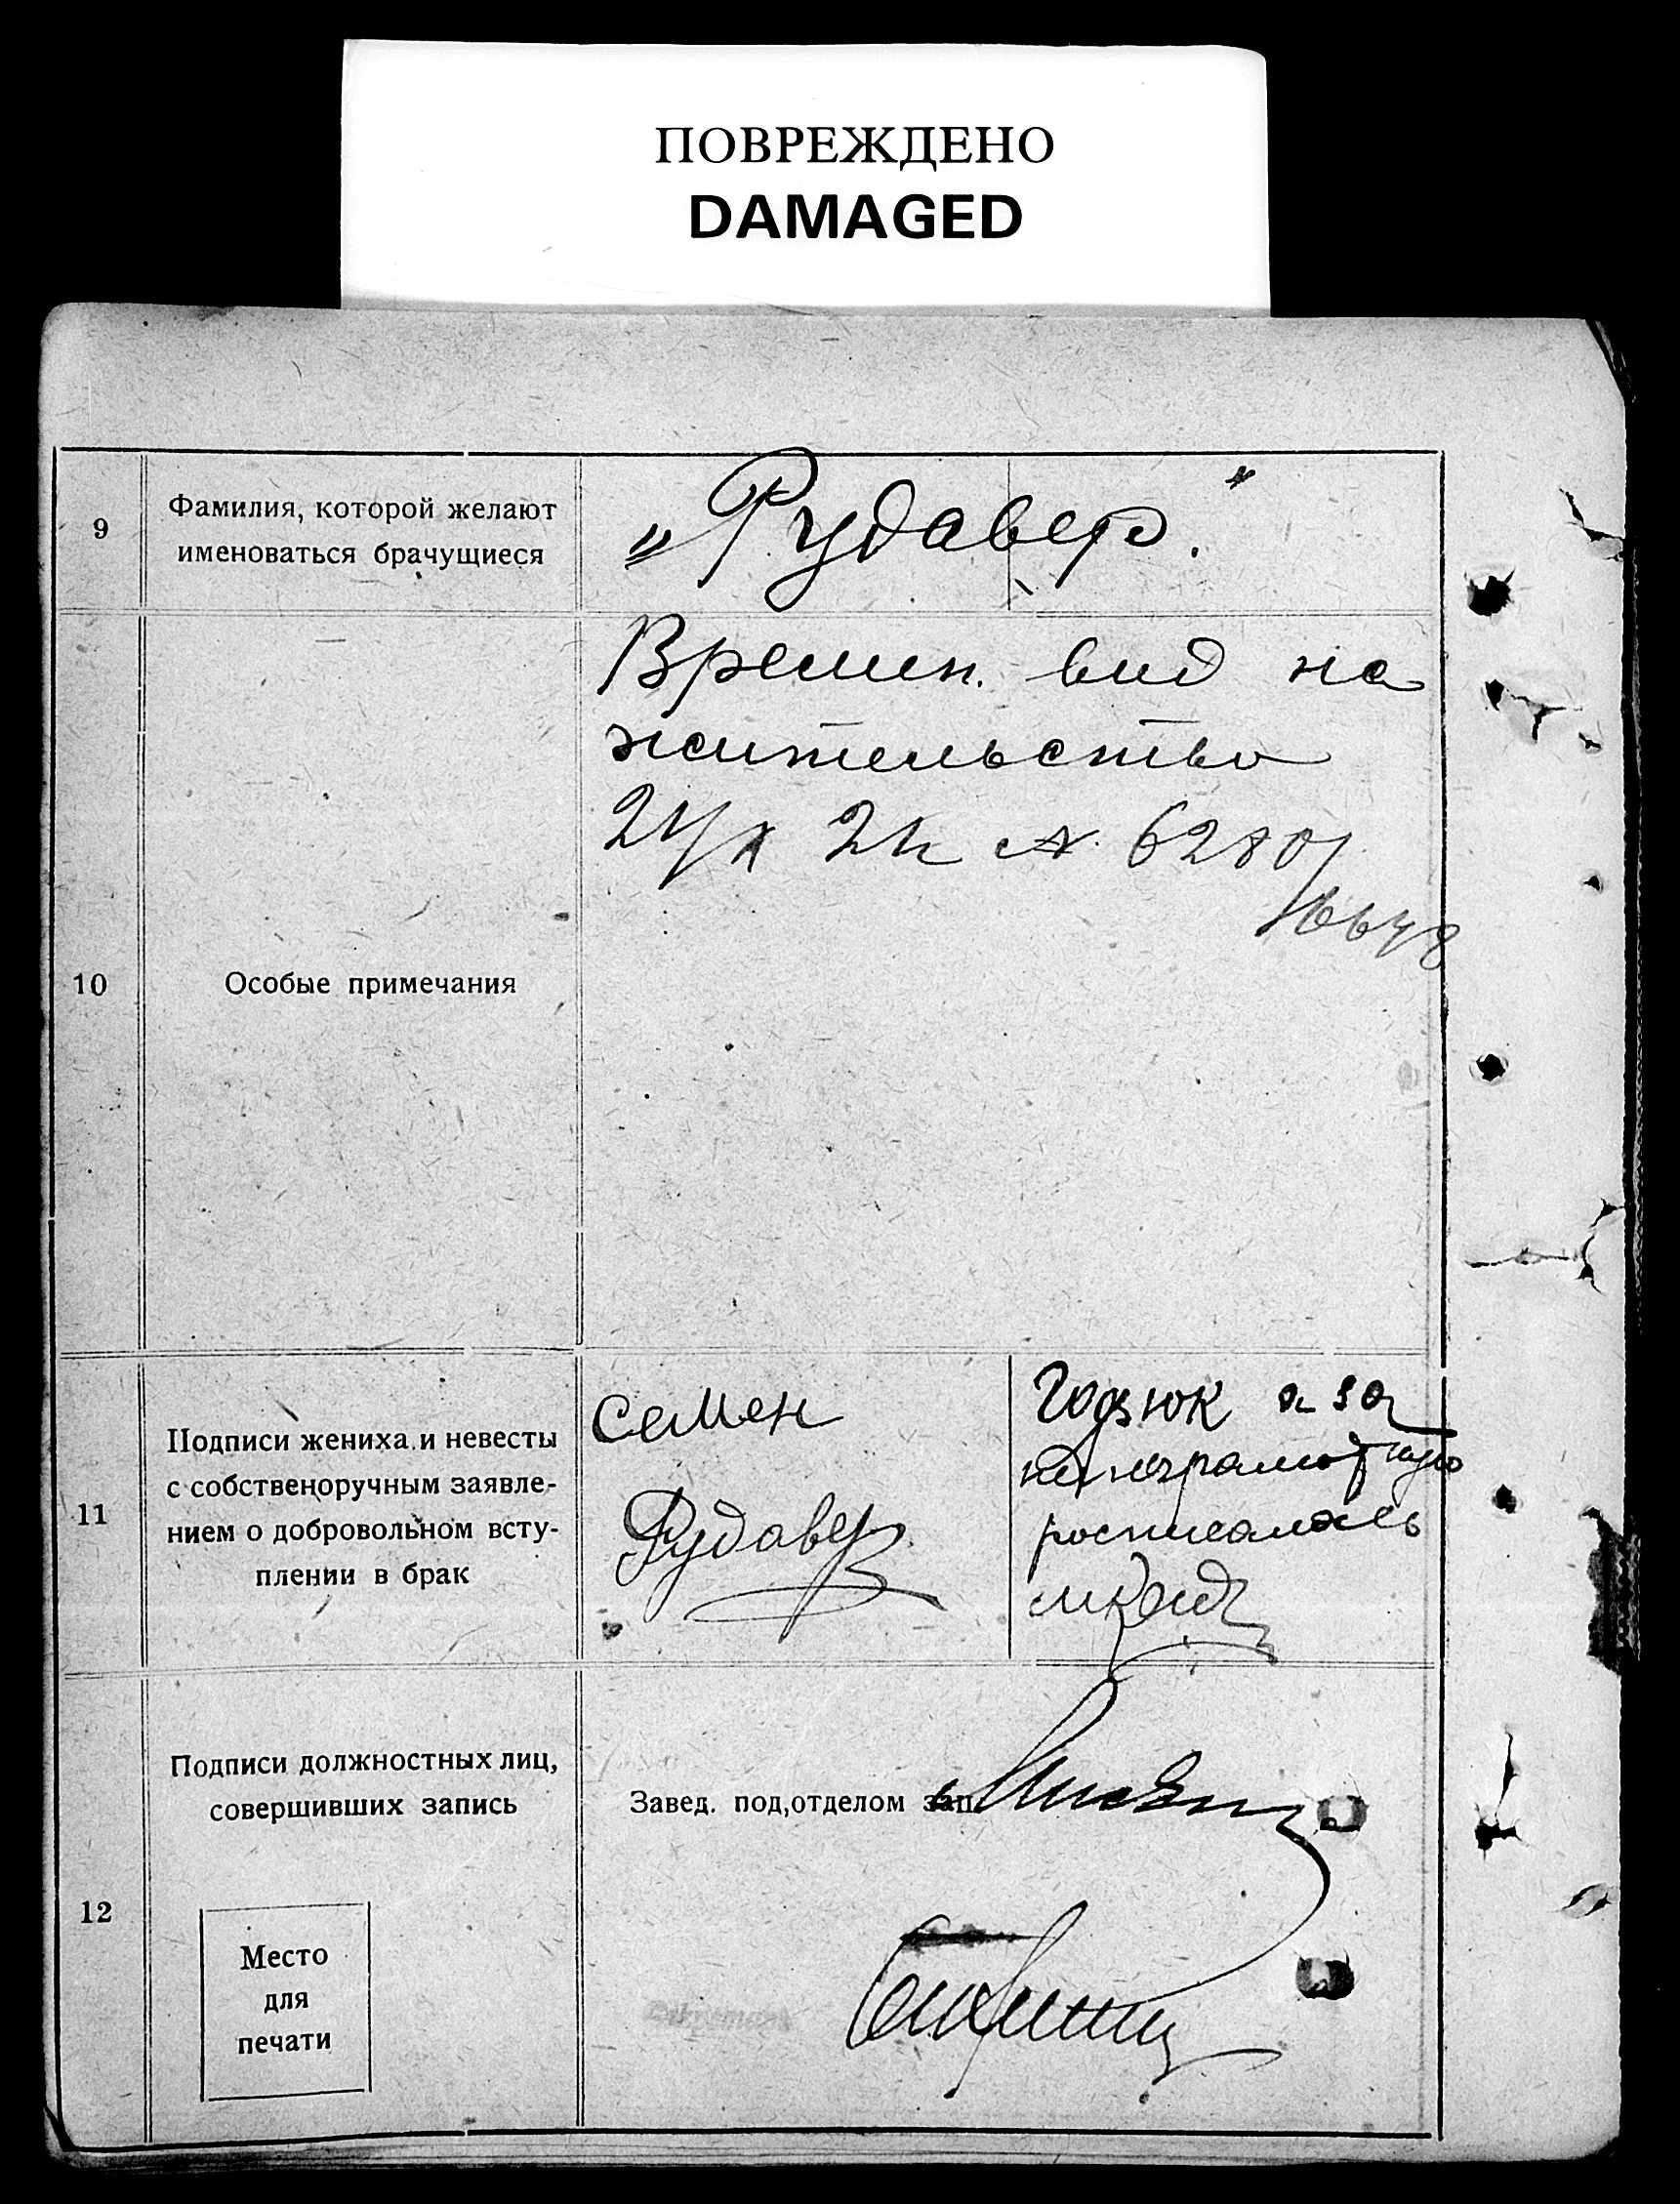 ПОВРЕЖДЕНО
DAMAGED
9
Фамилия, которой желают
именоваться брачущиеся
„Рудавер."
10
Особые примечания
Времен. вид на
жительство
No 6280/
11
Подписи жениха и невесты
с собственоручным заявле-
нием о добровольном всту-
плении в брак
Семен
Рудавер
Годзюк а за
неграмотную
росписалась
12
Подписи должностных лиц,
совершивших запись
Завед. под,отделом зап.
Место
для
печати